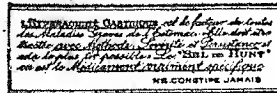 L'HYPERACIDITÉ GASTRIQUE est le facteur de toutes
les Maladies Graves de l'Estomac. Elle doit être
traitée avec Méthode, Sévérité et Persistance et
cela le plus tôt possible. Le "SEL DE HUNT"
en est le Médicament vraiment spécifique.
NE CONSTIPE JAMAIS